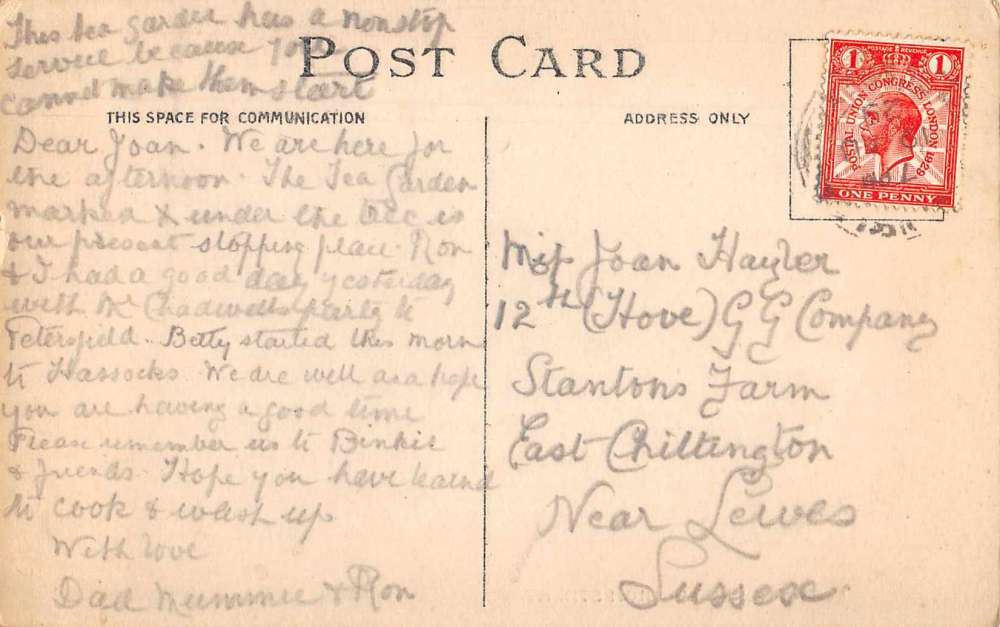 This tea garden has a nonstop
service because you
cannot make them start
POST CARD
THIS SPACE FOR COMMUNICATION
ADDRESS ONLY
Dear Joan. We are here for
the afternoon. The Tea Garden
marked X under the tree is
our present stopping place. Ron
& I had a good day yesterday
with Mr Chadwells party to
Petersfield. Betty started this morn
to Hassocks. We are well and hope
you are having a good time
Please remember us to Binkie
& friends. Hope you have learnd
to cook & wash up
With love
Dad Mummie & Ron
POSTAGE REVENUE
1 1
POSTAL UNION CONGRESS LONDON 1929
ONE PENNY
Miss Joan Hayler
12th (Hove) G G Company
Stantons Farm
East Chiltington
Near Lewes
Sussex